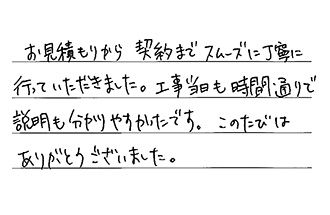 お見積もりから 契約まで スムーズに丁寧に
行っていただきました。工事当日も時間通りで
説明も分かりやすかったです。このたびは
ありがとうございました。